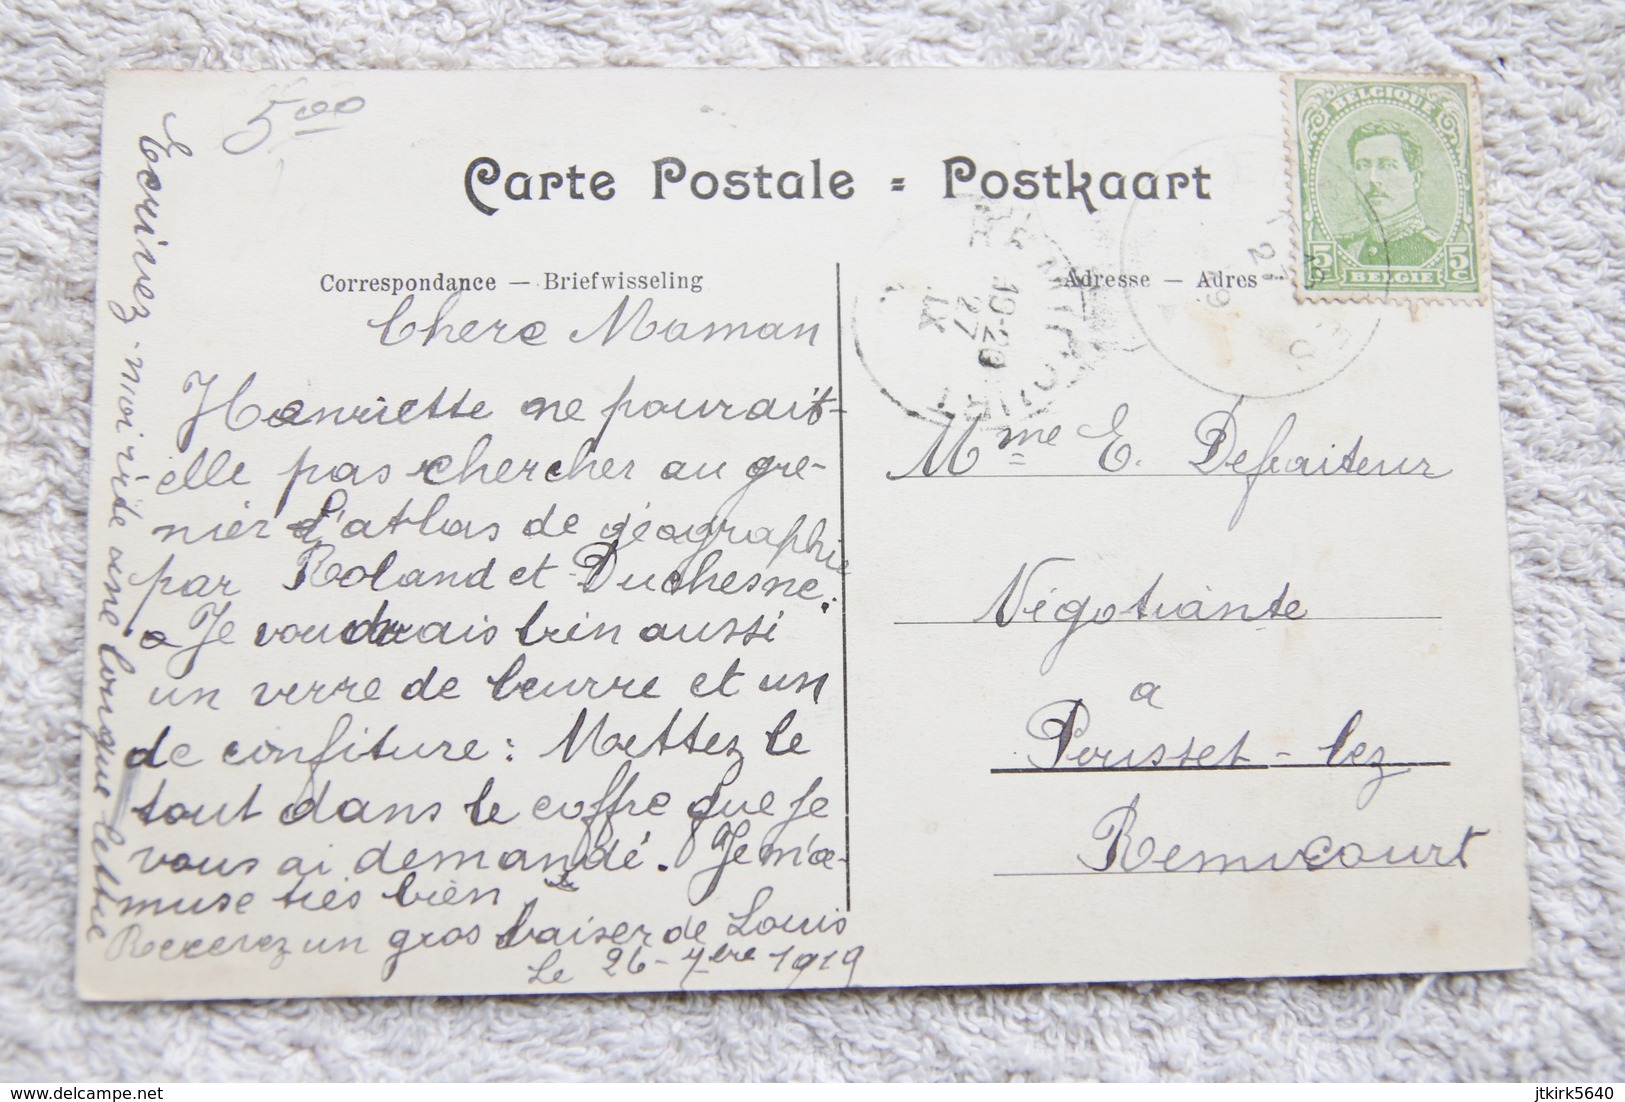 5,00
Carte Postale = Postkaart
Correspondance — Briefwisseling
Chere Maman
Henriette ne pourait-
elle pas chercher au gre-
nier l'atlas de géographie
par Roland et Duchesne.
Je voudrais bien aussi
un verre de beurre et un
de confiture: Mettez le
tout dans le coffre que je
vous ai demandé. Je m'a-
muse très bien
Recevez un gros baiser de Louis
Le 26-7bre 1919
Ecrivez-moi vite une longue lettre
Adresse — Adres
Mme E. Defraiteur
Négotiante
à
Pousset-lez
Remicourt
BELGIQUE
5c 5c
BELGIE
REMICOURT
19-20
27
IX
delcampe.net
jtkirk5640